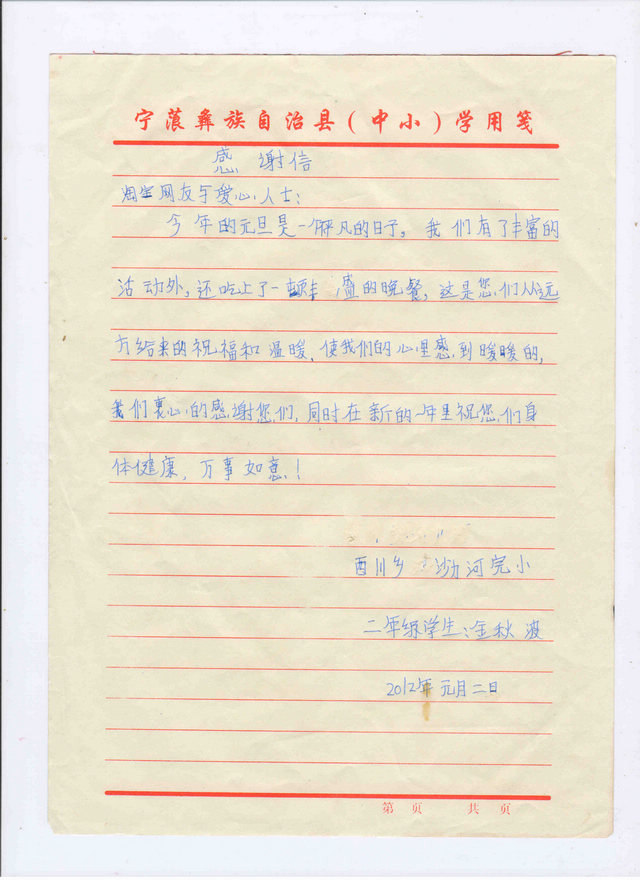 宁蒗彝族自治县(中小)学用笺
感谢信
网友与爱心人士：
今年的元旦是一个平凡的日子。我们有了丰富的
活动外,还吃上了一顿丰盛的晚餐,这是您们从远
方给来的祝福和温暖,使我们的心里感到暖暖的,
我们衷心的感谢您们,同时在新的一年里祝您们身
体健康,万事如意!
西川乡 沙力河完小
二年级学生:金秋波
2012年元月二日
第 页 共 页